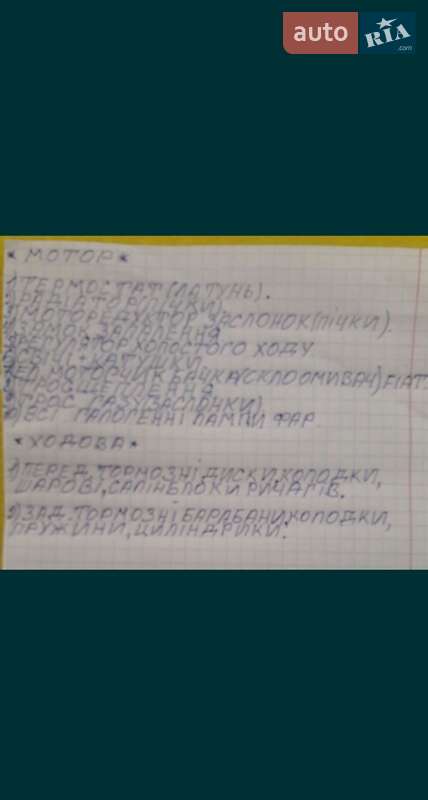 auto RIA .com
* МОТОР *
1) ТЕРМОСТАТ (ЛАТУНЬ).
РАДІАТОР (ПІЧКИ)
МОТОРЕДУКТОР ЗАСЛОНОК (ПІЧКИ).
ЗАМОК ЗАПАЛЕННЯ
РЕГУЛЯТОР ХОЛОСТОГО ХОДУ
СВІЧІ, КАТУШКИ
ЕЛ. МОТОРЧИК БАЧКА (СКЛООМИВАЧ) FIAT
ТРОС
ТРОС ГАЗУ (ЗАСЛОНКИ)
ВСІ ГАЛОГЕННІ ЛАМПИ ФАР
* ХОДОВА *
1) ПЕРЕД. ТОРМОЗНІ ДИСКИ, КОЛОДКИ,
ШАРОВІ, САЛІНБЛОКИ РИЧАГІВ.
2) ЗАД. ТОРМОЗНІ БАРАБАНИ, КОЛОДКИ,
ПРУЖИНИ, ЦИЛІНДРИКИ.